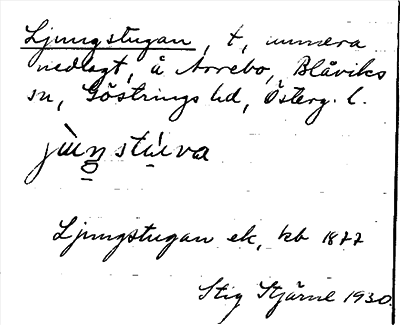 Ljungstugan, t, numera
nedlagt, å Arrebo, Blåviks
sn, Göstrings hd, Österg. l.
jùŋstùva
Ljungstugan ek, kb 1877
Stig Stjärne 1930.